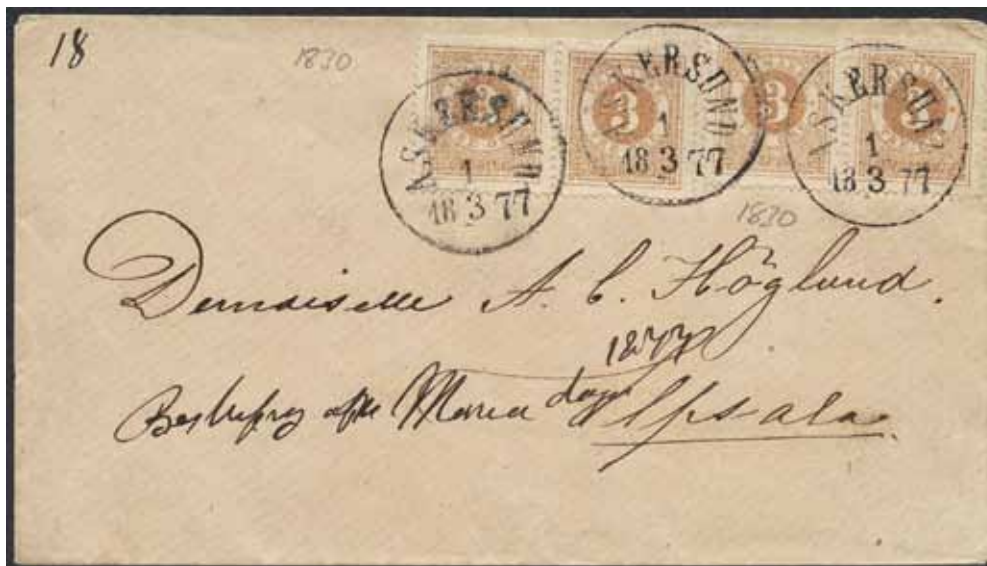 18
1830
3 3 3 3
ASKERSUND
1
18 3 77
ASKERSUND
1
18 3 77
ASKERSUND
1
18 3 77
1830
Demoiselle A. C. Höglund.
1877
Maria dag Upsala.